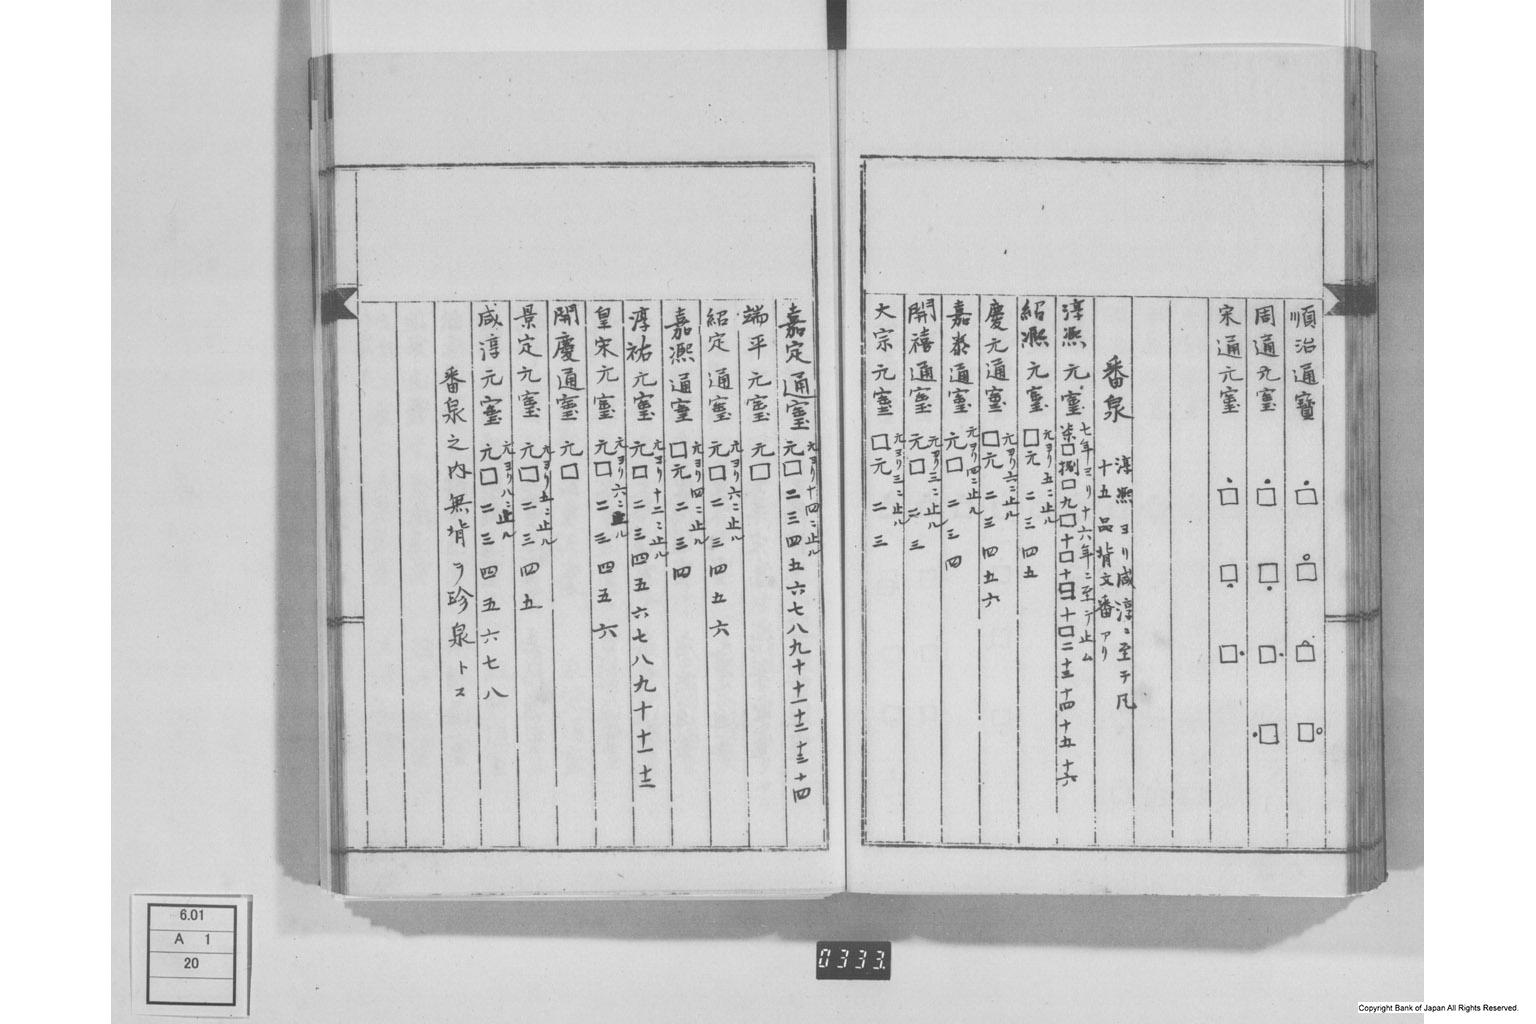 順治通寳
周通元寳
宋通元寳
番泉 淳熈ヨリ咸淳ニ至テ凡
十五品背文番アリ
淳熈元寳 七年ヨリ十六年ニ至テ止ム
柒□捌□九□十□十□十□二十三十四十五十六
紹熈元寳 元ヨリ五ニ止ル
□元二三四五
慶元通寳 元ヨリ六ニ止ル
□元二三四五六
嘉泰通寳 元ヨリ四ニ止ル
元□二三四
開禧通寳 元ヨリ三ニ止ル
元□二三
大宗元寳 元ヨリ三ニ止ル
□元二三
嘉定通寳 元ヨリ十四ニ止ル
元□二三四五六七八九十十一十二十三十四
端平元寳 元□
紹定通寳 元ヨリ六ニ止ル
元□二三四五六
嘉熈通寳 元ヨリ四ニ止ル
□元二三四
淳祐元寳 元ヨリ十二ニ止ル
元□二三四五六七八九十十一十二
皇宋元寳 元ヨリ六ニ止ル
元□二三四五六
開慶通寳 元□
景定元寳 元ヨリ五ニ止ル
元□二三四五
咸淳元寳 元ヨリ八ニ止ル
元□二三四五六七八
番泉之内無背ヲ珍泉トス
6.01
A 1
20
0333.
Copyright Bank of Japan All Rights Reserved.